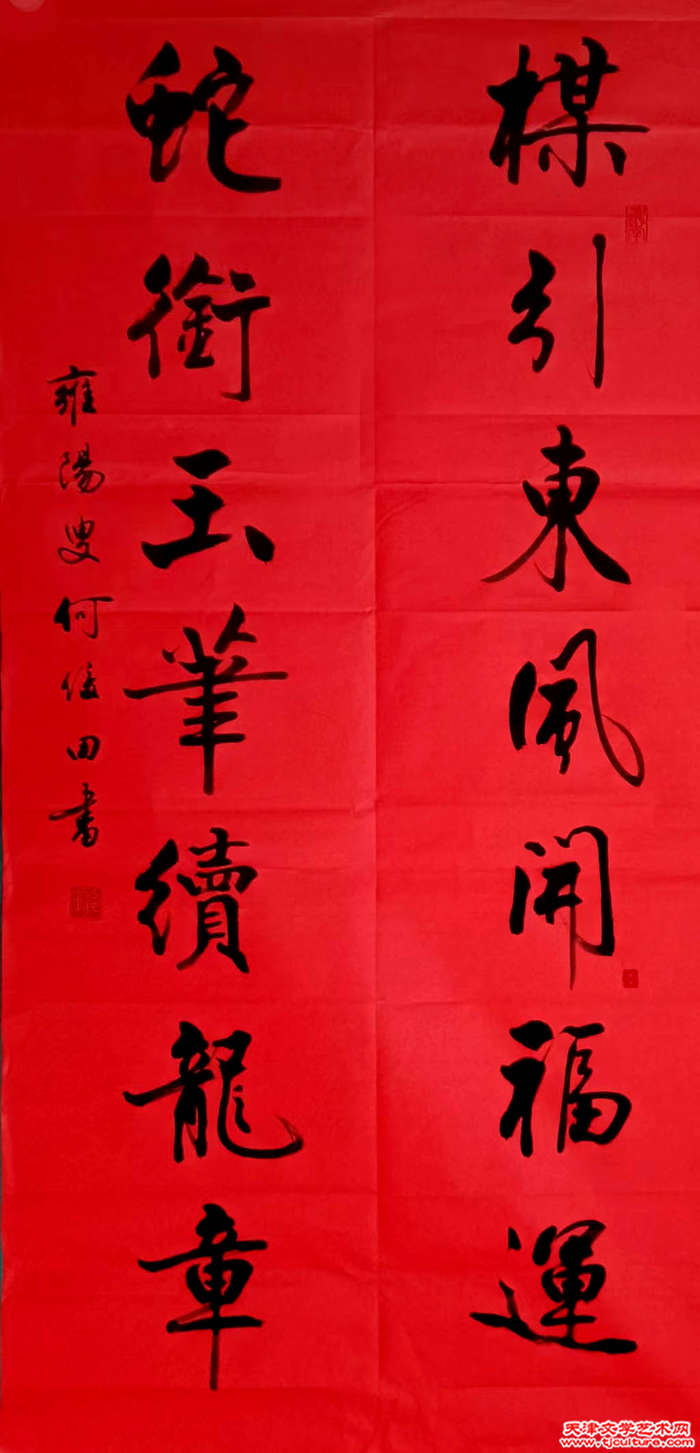 楳引東風開福運
蛇銜玉筆續龍章
雍陽叟何佳田書
天津文学艺术网
www.tjculture.com